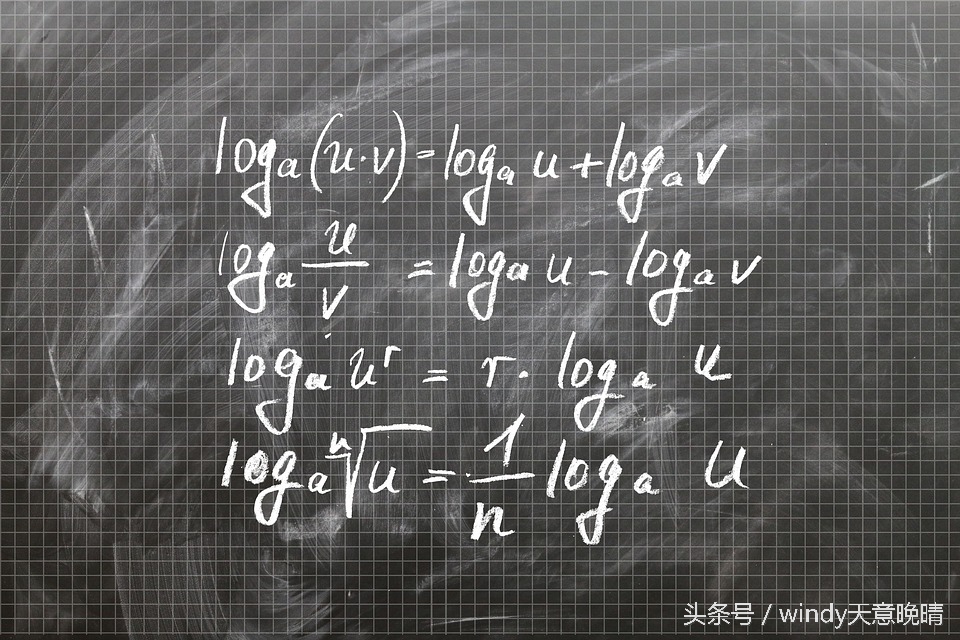 logₐ(u·v) = logₐ u + logₐ v
logₐ u/v = logₐ u - logₐ v
logₐ uʳ = r · logₐ u
logₐ ⁿ√u = 1/n logₐ u
头条号 / windy天意晚晴